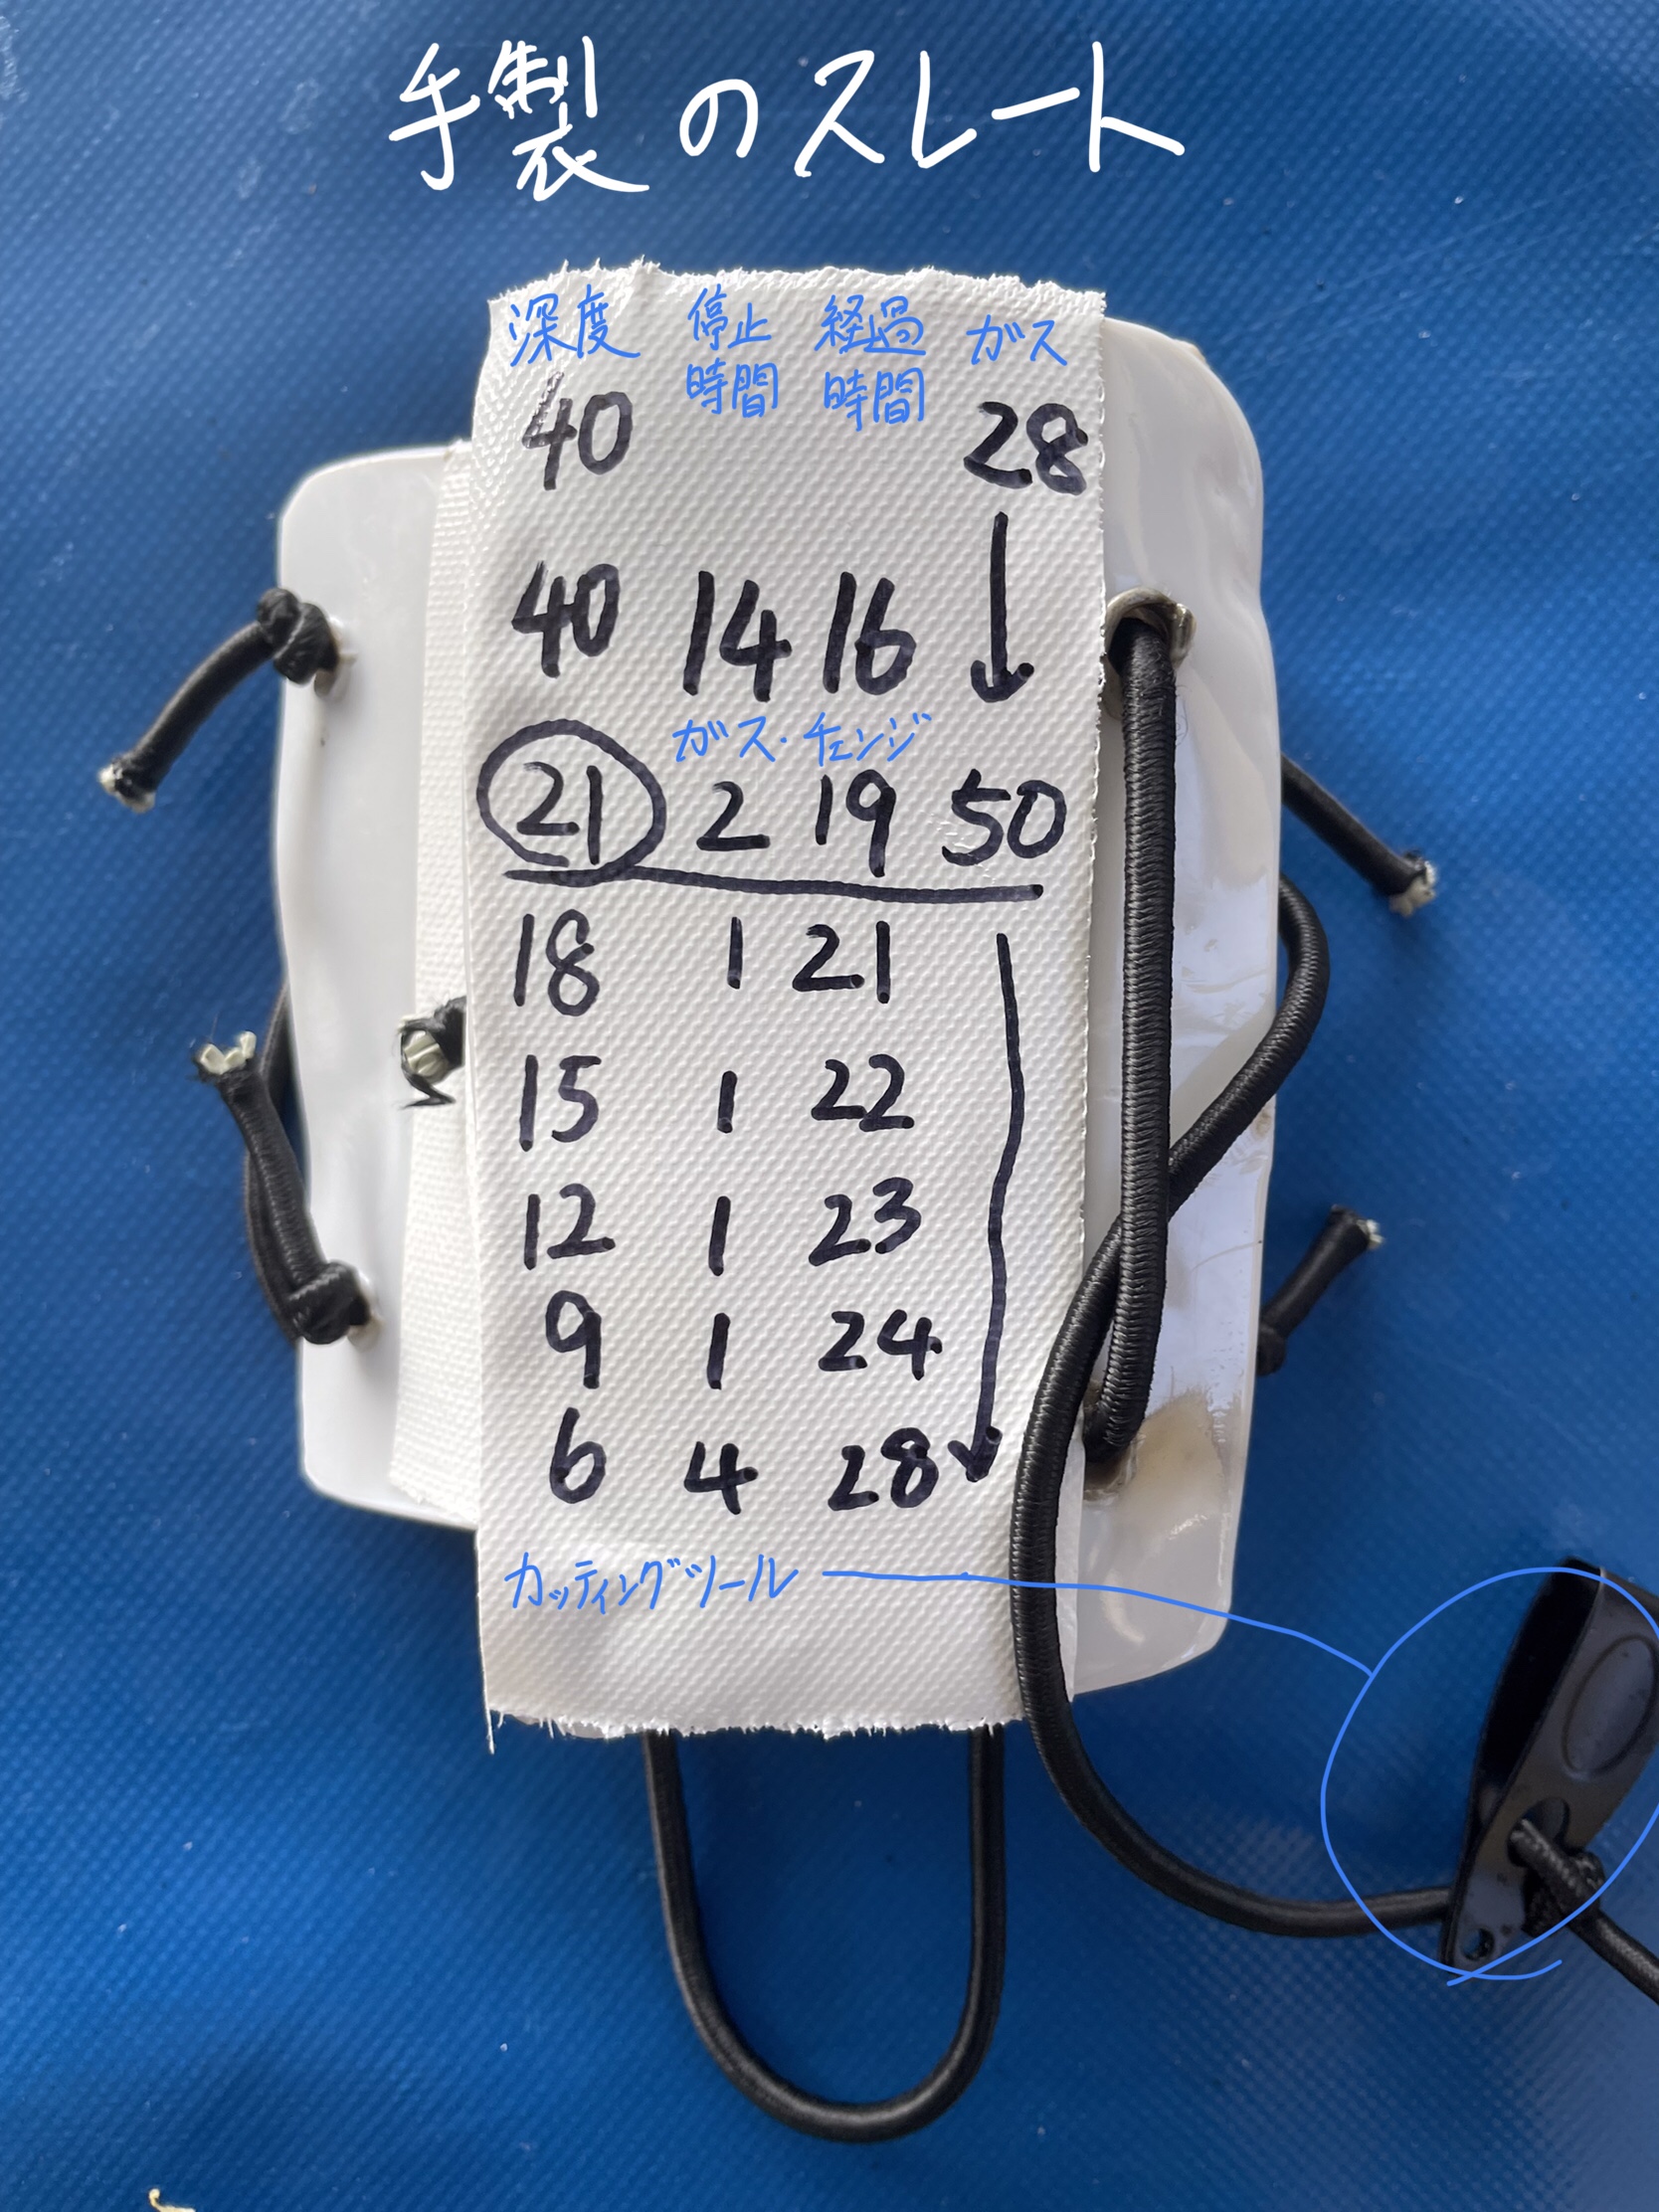 手製のスレート
深度 停止時間 経過時間 ガス
40 28
↓
40 14 16
ガス・チェンジ
21 2 19 50
18 1 21
15 1 22
12 1 23
9 1 24
6 4 28
↓
カッティングツール